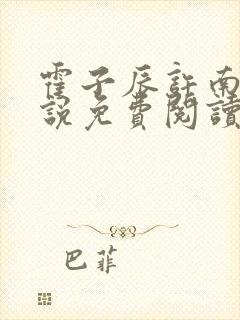 霍子辰許南
說免費閱讀
巴菲